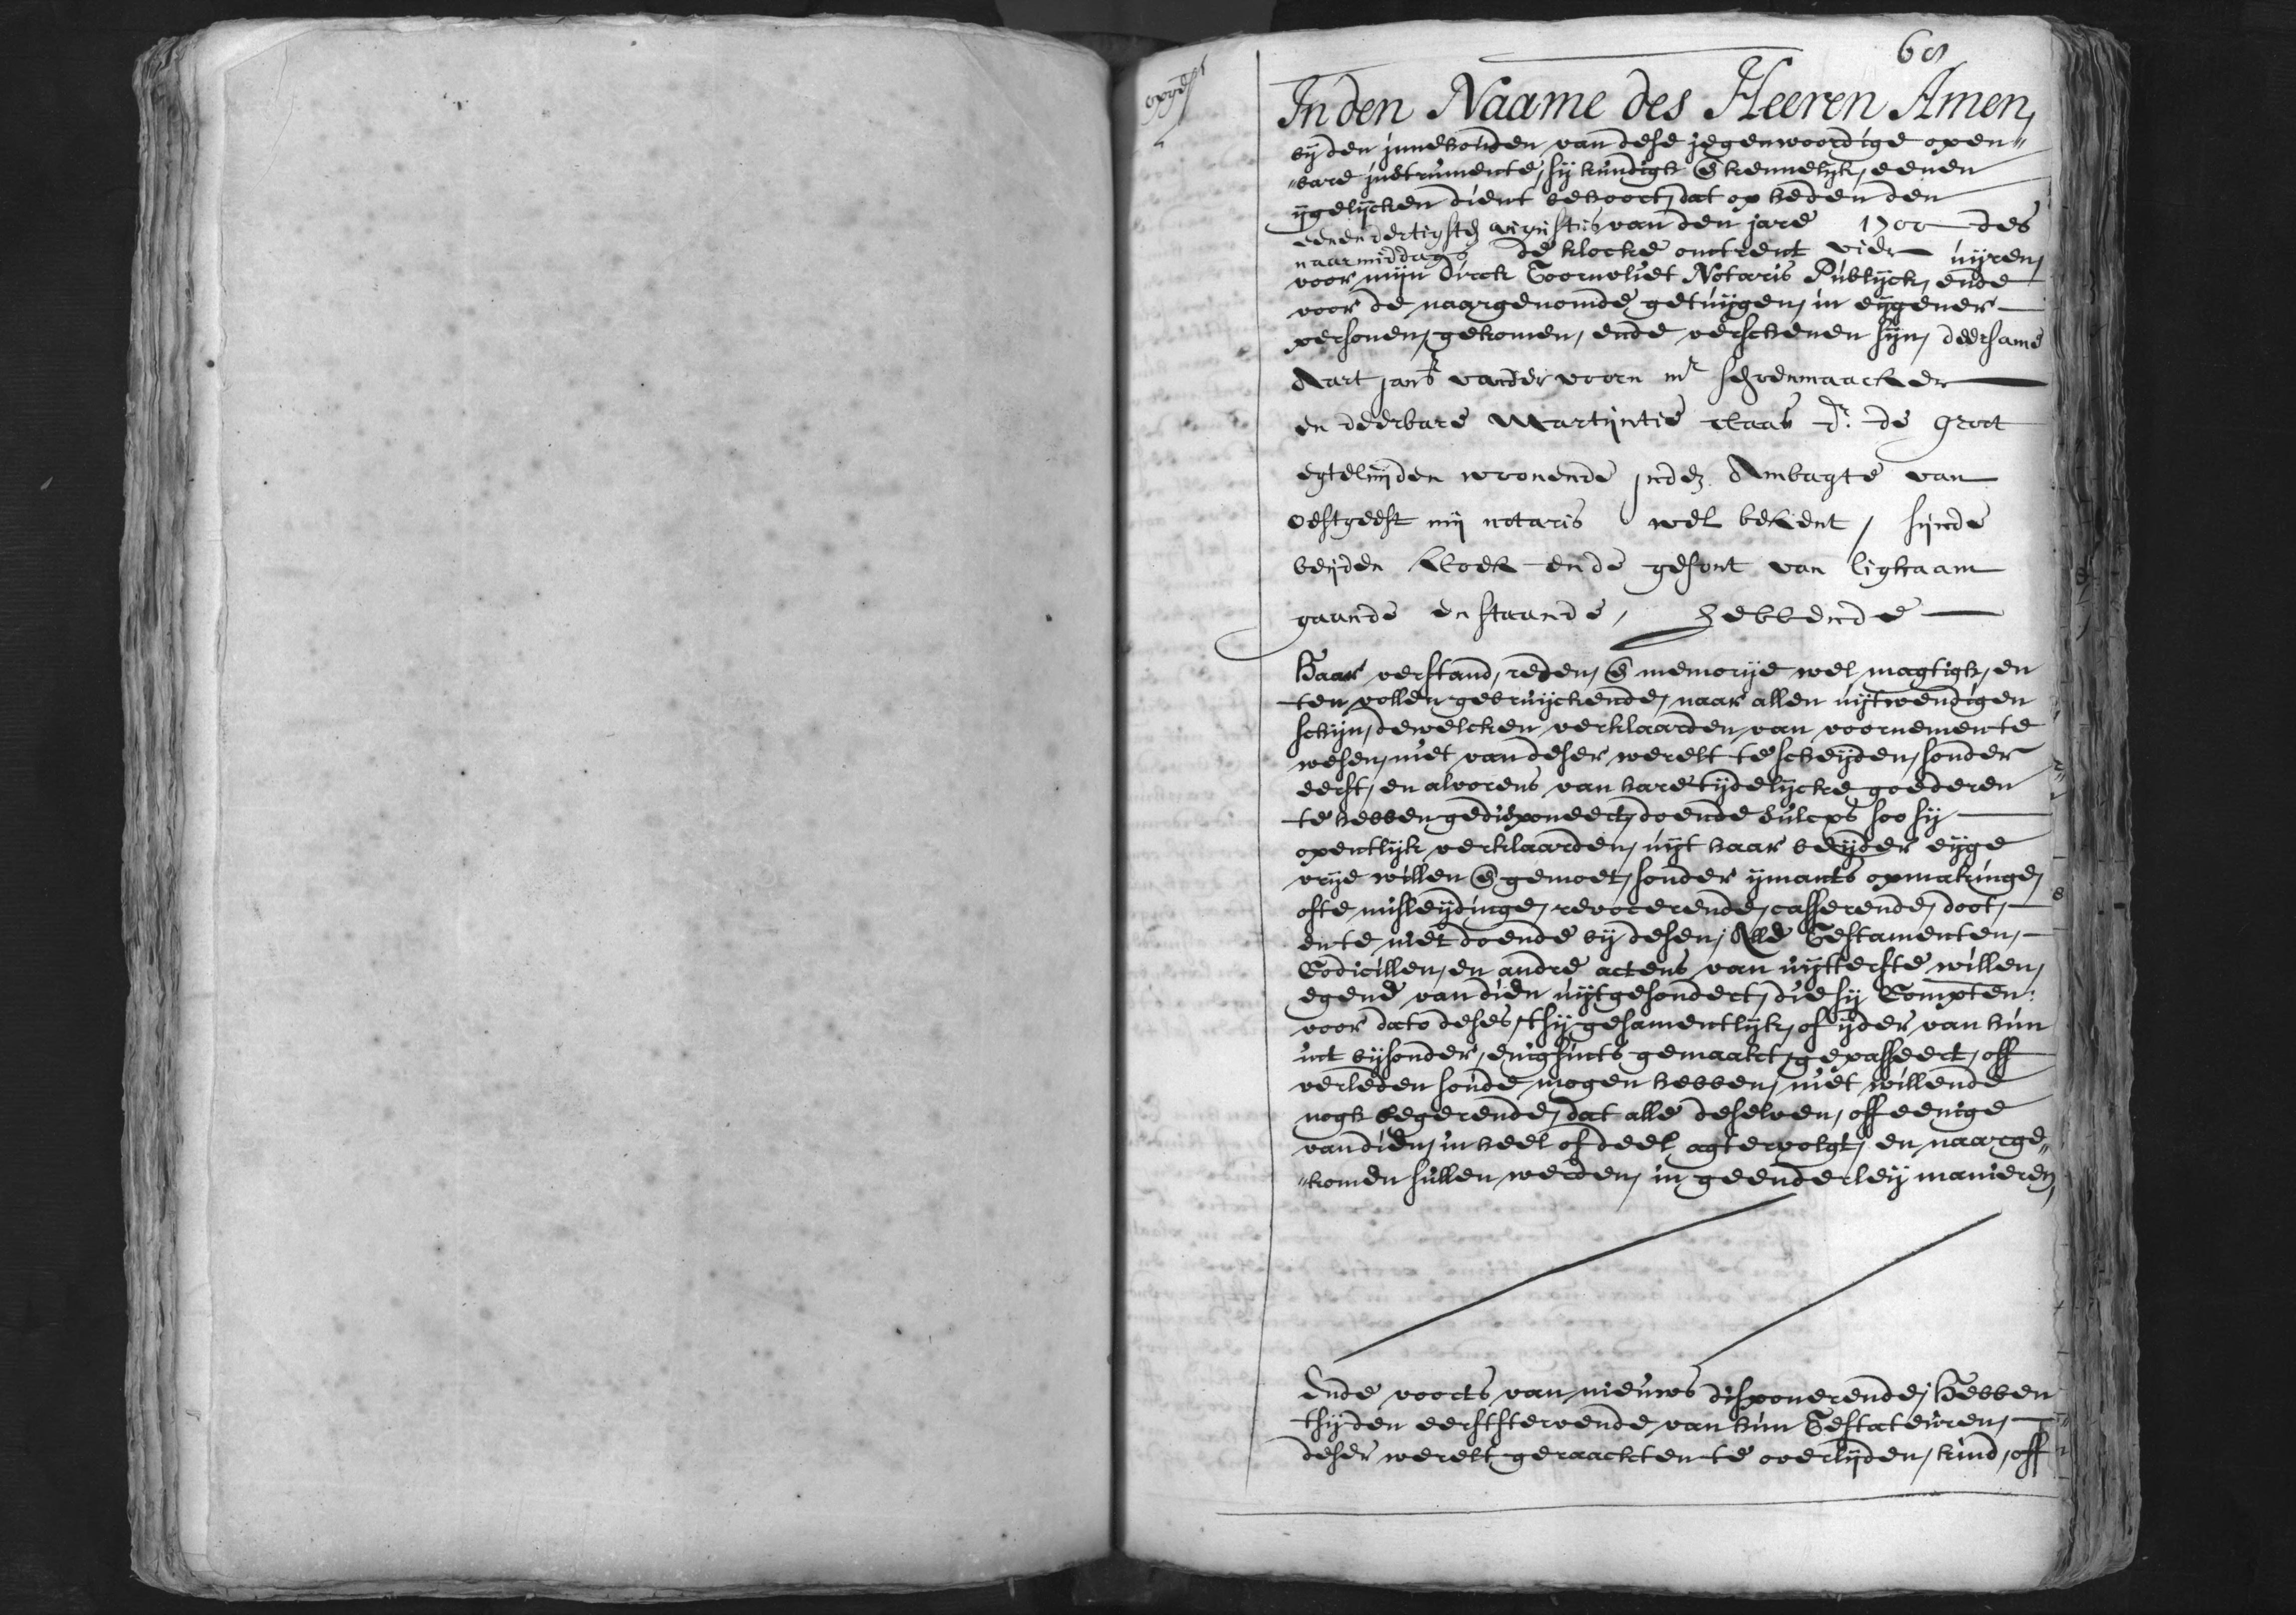 68
In den Naame des Heeren Amen,
by den innehouden van dese jegenwoordige open„
„bare instrumente, sij kundigh & kennelyk, eenen
ygelycken dient behoort, dat op heden den
eenendertigsten augustus van den jare 1700 des
naarmiddags de klocke omtrent vier uijren,
voor mijn Dirck Toornvliet Notaris Publyck, ende
voor de naargenomde getuijgen, in eijgener
personen, gekomen, ende verschenen sijn, deersame
Aart jans vander voorn mr schoenmaacker
en deerbare Martijntie claas dr. de groot
egtelijden woonende inden Ambagte van
oestgeest mij notaris wel bekent, sijnde
beijden kloek ende gesont van lighaam
gaande en staande, hebbende
Haar verstand, reden, & memorije wel magtigh, en
ten vollen gebruijckende, naar allen uijtwendigen
schijn, dewelcken verklaarden van voornemen te
wesen, niet van deser werelt te scheijden, sonder
eerst, en alvorens van hare tijdelijcke goederen
te hebben gedisponeert, doende sulcx soo sij
opentlijk verklaarden, uijt haar beijder eijge
vrije willen & gemoet, sonder ymants opmakinge,
ofte misleijdinge, revocerende, casserende, doot,
ente niet doende bij desen, Alle Testamenten,
Codicillen, en andre actens van uijtterste willen,
egene van dien uijtgesondert, die sij Compten:
voor dato deses, 'tsij gesamentlijk, of ijder van hun
int bijsonder, enigsints gemaakt, gepasseert, off
verleden soude mogen hebben, niet willende
nogh begerende, dat alle deselven, off eenige
van dien, in heel of deel, agtervolgt, en naarge„
„komen sullen werden, in geenderleij manieren,
Ende voorts van nieuws disponerende, Hebben
tsij den eerststervende van hun Testateuren,
deser werelt geraackten te overlijden, kind, off